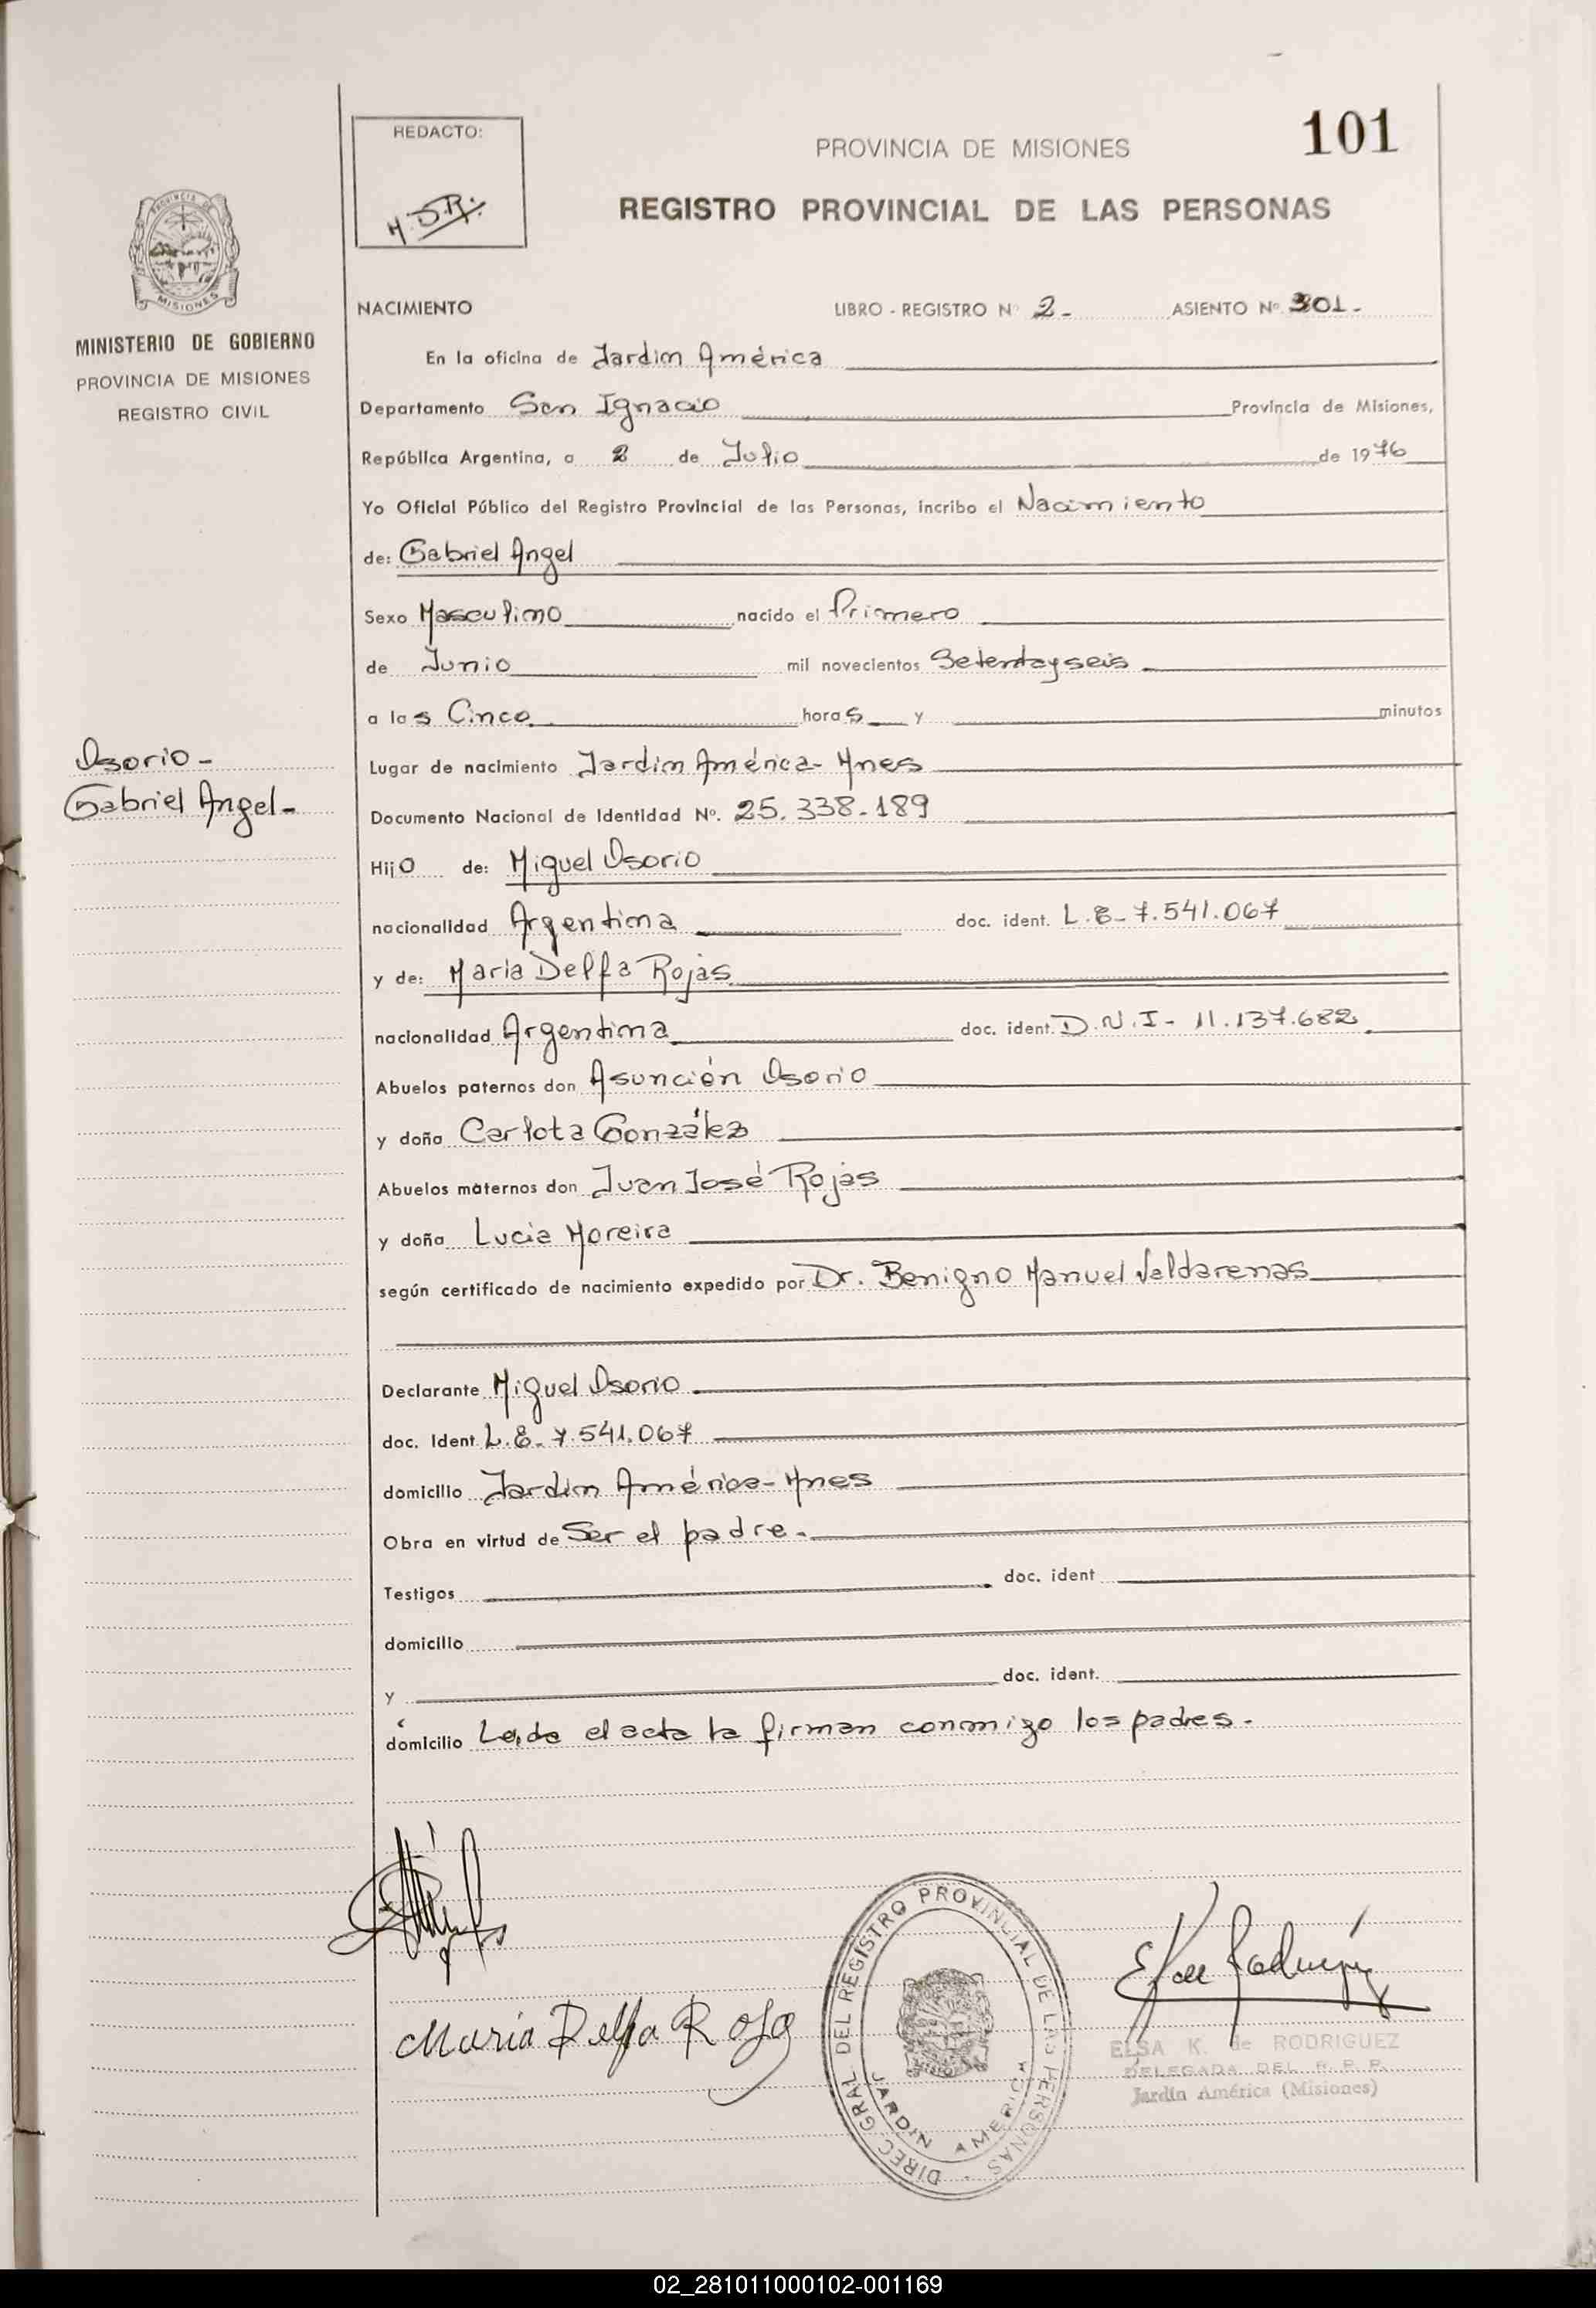 REDACTO:
H.D.R.
PROVINCIA DE MISIONES
101
REGISTRO PROVINCIAL DE LAS PERSONAS
PROVINCIA DE
MISIONES
MINISTERIO DE GOBIERNO
PROVINCIA DE MISIONES
REGISTRO CIVIL
NACIMIENTO LIBRO - REGISTRO Nº 2- ASIENTO Nº 301-
En la oficina de Jardim América
Departamento San Ignacio Provincia de Misiones,
República Argentina, a 2 de Julio de 1976
Yo Oficial Público del Registro Provincial de las Personas, incribo el Nacimiento
de: Gabriel Angel
Sexo Masculino nacido el Primero
de Junio mil novecientos Setentayseis
a las Cinco horas y minutos
Osorio-
Gabriel Angel-
Lugar de nacimiento Jardim América- Mnes
Documento Nacional de Identidad Nº. 25.338.189
Hijo de: Miguel Osorio
nacionalidad Argentina doc. ident. L.E- 7.541.067
y de: Maria Delfa Rojas
nacionalidad Argentina doc. ident. D.N.I- 11.137.682
Abuelos paternos don Asunción Osorio
y doña Carlota González
Abuelos maternos don Juan José Rojas
y doña Lucia Moreira
según certificado de nacimiento expedido por Dr. Benigno Manuel Valdarenas
Declarante Miguel Osorio
doc. Ident L.E- 7.541.067
domicilio Jardim América- Mnes
Obra en virtud de Ser el padre.
Testigos doc. ident
domicilio
y doc. ident.
domicilio Leida el acta la firman conmigo los padres.
Maria Delfa Roja
DIREC. GRAL DEL REGISTRO PROVINCIAL DE LAS PERSONAS
JARDIN AMERICA
ELSA K. de RODRIGUEZ
DELEGADA DEL R. P. P.
Jardín América (Misiones)
02_281011000102-001169